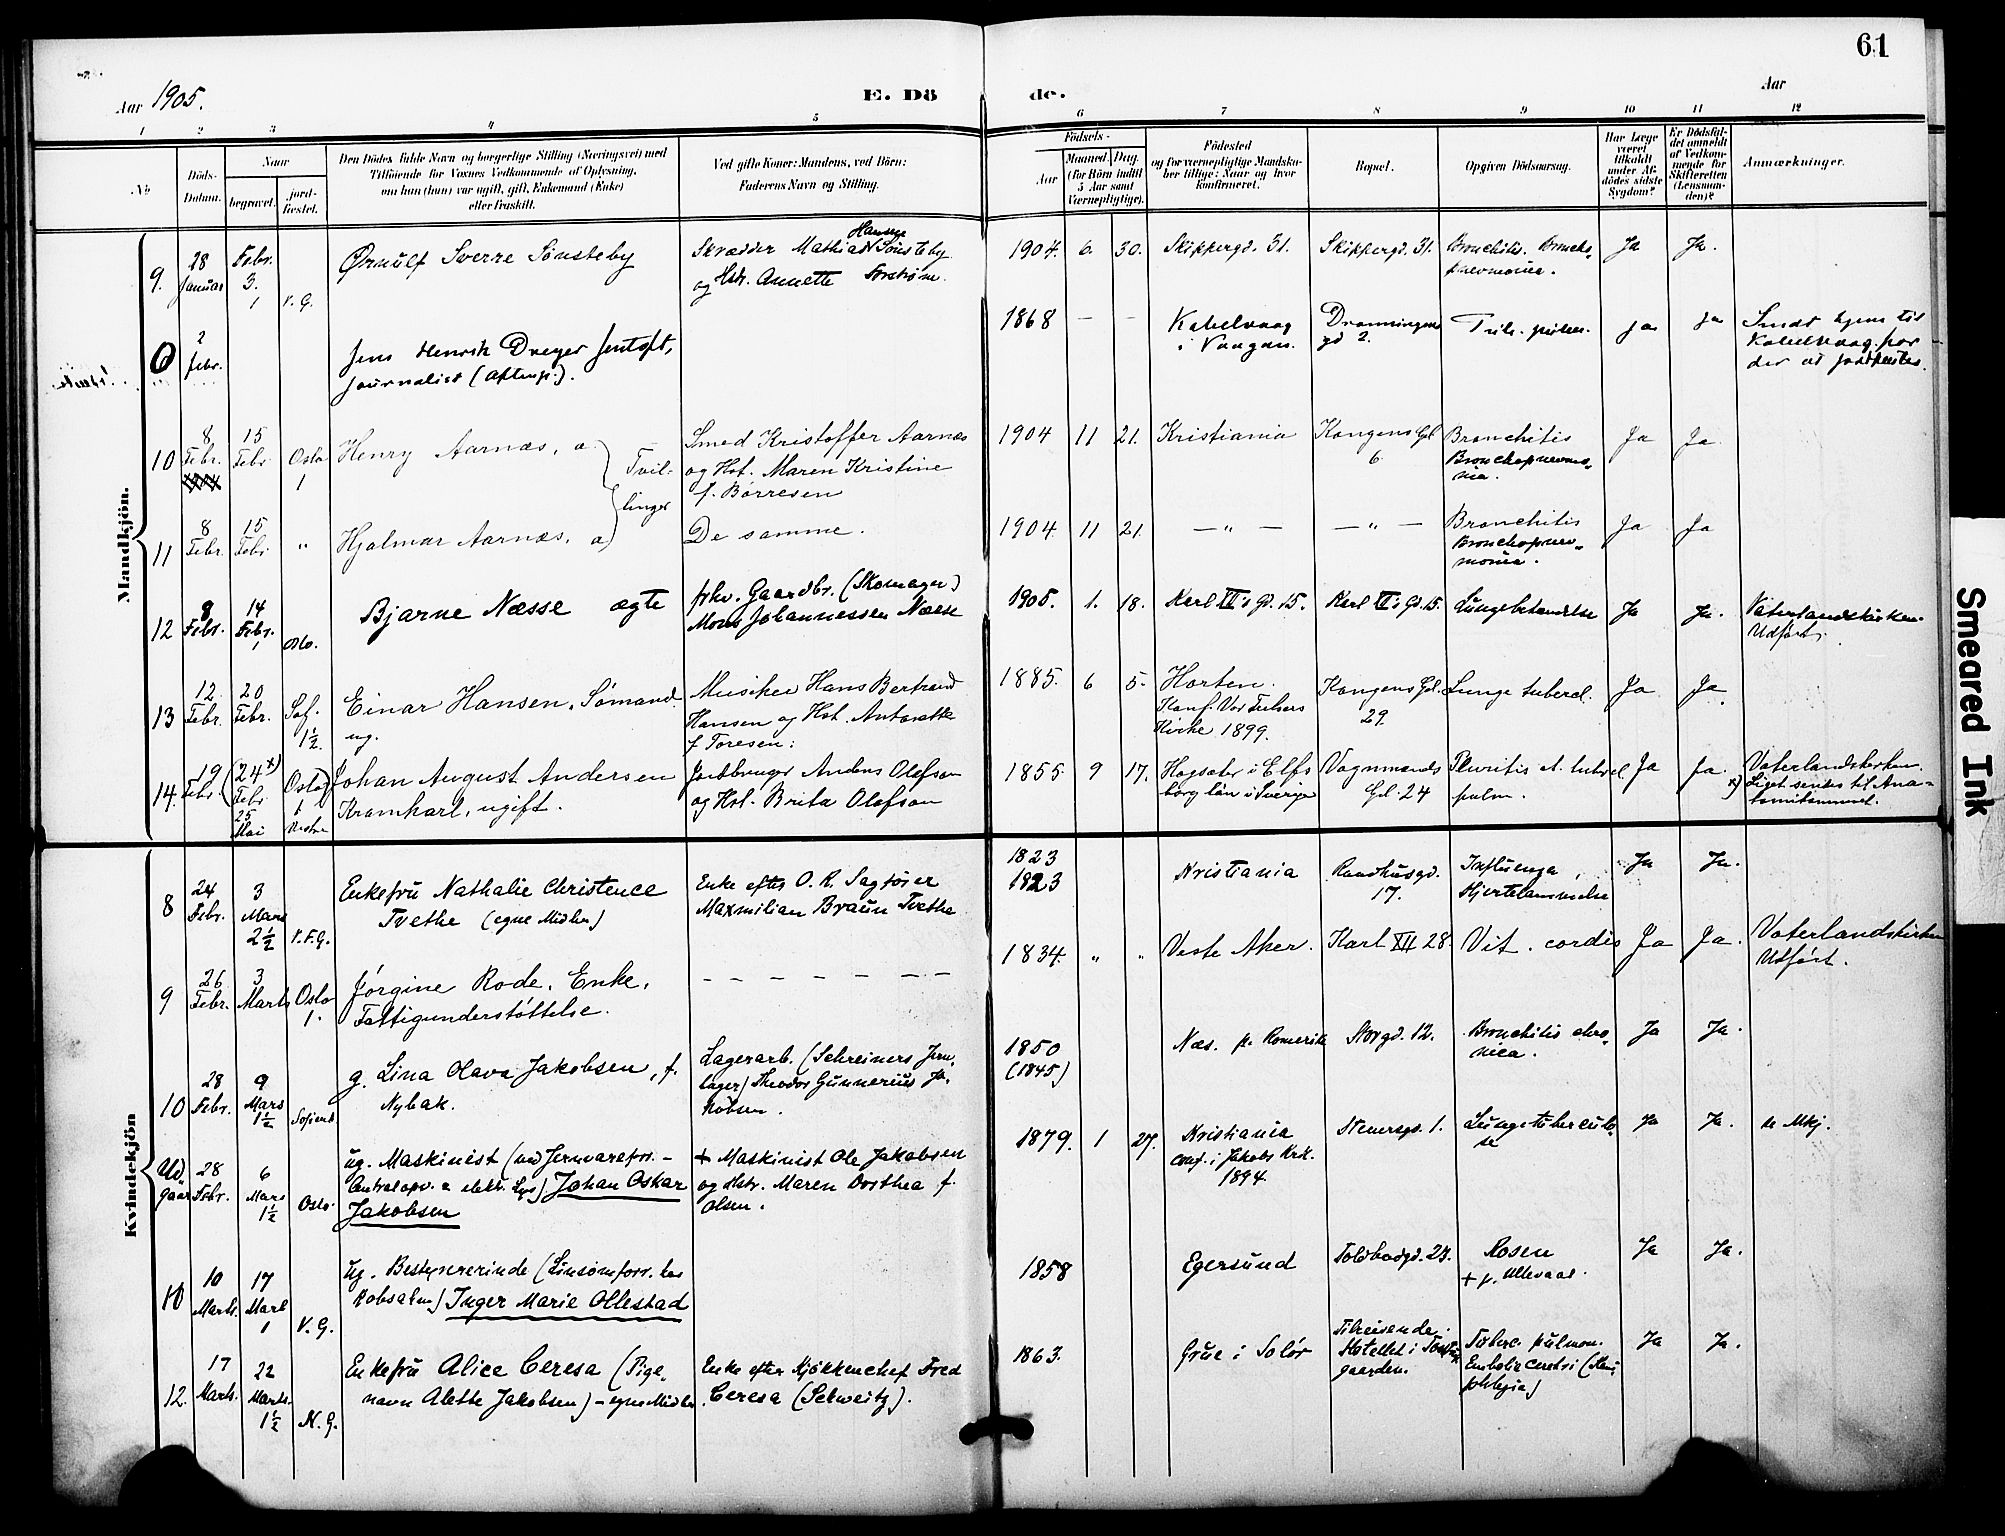 61
Aar 1905.
E. Dö
de.
Aar
1 2 3 4 5 6 7 8 9 10 11 12
No
Döds-
Datum.
Naar
begravet.
jord-
fæstet.
Den Dödes fulde Navn og borgerlige Stilling (Næringsvei) med
Tilföiende for Voxnes Vedkommende af Oplysning,
om han (hun) var ugift, gift, Enkemand (Enke)
eller fraskilt.
Ved gifte Koner: Mandens, ved Börn:
Faderens Navn og Stilling.
Födsels-
Aar
Maaned.
Dag.
(for Börn indtil
5 Aar samt
Værnepligtige).
Födested
og for værnepligtige Mandska-
ber tillige: Naar og hvor
konfirmeret.
Bopæl.
Opgiven Dödsaarsag.
Har Læge
været
tilkaldt
under Af-
dödes sidste
Sygdom?
Er Dödsfal-
det anmeldt
af Vedkom-
mende for
Skifteretten
(Lensman-
den)?
Anmærkninger.
Mandkjön.
9. 28 Januar Febr. 3. 1 V. G.
Ørnulf Sverre Sönsteby
Skrædder Mathias Hansen Sönsteby
og Hstr. Annette
1904. 6. 30. Skippergd. 31. Skippergd. 31. Bronchitis. Broncho-
pnevmonie. Ja Ja.
2 Febr.
Jens Henrik Dreyer Jentoft,
Journalist (Aftenp.).
1868 — — Kabelvaag
i Vaagan. Dronningens
gd 2. ja ja Sendt hjem til
Kabelvaag for
der at jordfæstes.
10 8 Febr. 15 Febr Oslo 1
Henry Aarnæs, a
Tvil-
linger
Smed Kristoffer Aarnæs
og Hst. Maren Kristine
f. Börresen
1904 11 21. Kristiania Kongens Gd.
6 Bronchitis
Bronchopnevmo-
nia. Ja Ja
11 8 Febr. 15 Febr "
Hjalmar Aarnæs, a
De samme.
1904 11 21. — " — — " — Bronchitis
Bronchopnev-
monia. Ja Ja
12 8 Febr. 14 Febr. 1 Oslo.
Bjarne Næsse ægte
fhv. Gaardbr. (Skomager)
Mons Johannessen Næsse
1905. 1. 18. Karl XII's Gd. 15. Karl XII's Gd. 15. Lungebetændelse Ja Ja. Vaterlandskirken.
Udfört.
13 12 Febr. 20 Febr. Sof. 1½.
Einar Hansen, Sömand
ug.
Musiker Hans Bertrand
Hansen og Hst. Antonette
f Toresen.
1885. 6 5. Horten.
Konf. Vor Frelsers
Kirke 1899. Kongens Gd.
29. Lunge tubercl. Ja Ja.
14. 19 Febr. (24 x) Febr 25 Mai Oslo) 1 Vestre
Johan August Andersen
Kramkarl, ugift.
Jordbruger Anders Olafson
og Hst. Brita Olafson
1855 9 17. Hogsäter i Elfs
borg län i Sverige Vognmands
Gd. 24 Pleuritis et. tubercl
pulm. Ja Ja. Vaterlandskirken.
x) Liget sendes til Ana-
tomikammeret.
Kvindekjön
8 24 Febr. 3 Mars 2½ V.F.G.
Enkefru Nathalie Christence
Tvethe (egne Midler)
Enke efter O. R. Sagförer
Maxmilian Braun Tvethe
1823
1823 Kristiania Raadhusgd.
17. Influenza,
Hjertelammelse Ja Ja.
9 26 Febr. 3 Marts Oslo 1.
Jörgine Rode, Enke,
Fattigunderstöttelse.
— — — — — — —
1834. " " Vestre Aker. Karl XII 28. Vit. cordis Ja Ja. Vaterlandskirken
Udfört.
10 28 Febr. 9 Mars 1½ Sofienb.
g. Lina Olava Jakobsen, f.
Nybak.
Lagerarb. (Schreiners Jern-
lager) Theodor Gunnerius Ja-
kobsen.
1850
(1845) Næs. p. Romerike Storgd. 12. Bronchitis chro-
nica. Ja Ja.
Ud-
gaar 28 Febr. 6 Mars 1½ Oslo.
ug. Maskinist (ved Jernvareforr. -
Centralopv. & elektr. Lys) Johan Oskar
Jakobsen
+ Maskinist Ole Jakobsen
og Hstr. Maren Dorthea f.
Olsen.
1879. 1 27. Kristiania
conf. i Jakobs Krk.
1894. Stenersgd. 1. Lungetubercul-
se Ja Ja. se Mkj.
10 Marts. 17 Mars 1 V. G.
ug. Bestyrerinde (Linsömforr.
) Inger Marie Ollestad
1858 Egersund Toldbodgd. 27. Rosen
+ p. Ullevaal. Ja Ja.
12. 17 Marts. 22 Marts. 1½ N. G.
Enkefru Alice Ceresa (Pige-
navn Alette Jakobsen) - egne Midler.
Enke efter Kjökkenchef Fred
Ceresa (Schweitz).
1863. Grue i Solör Tilreisende.
Hotellet i
gaarden. Tuberc. pulmon.
Embolia cerebri (Hemi-
phlegia) Ja Ja.
Smeared Ink